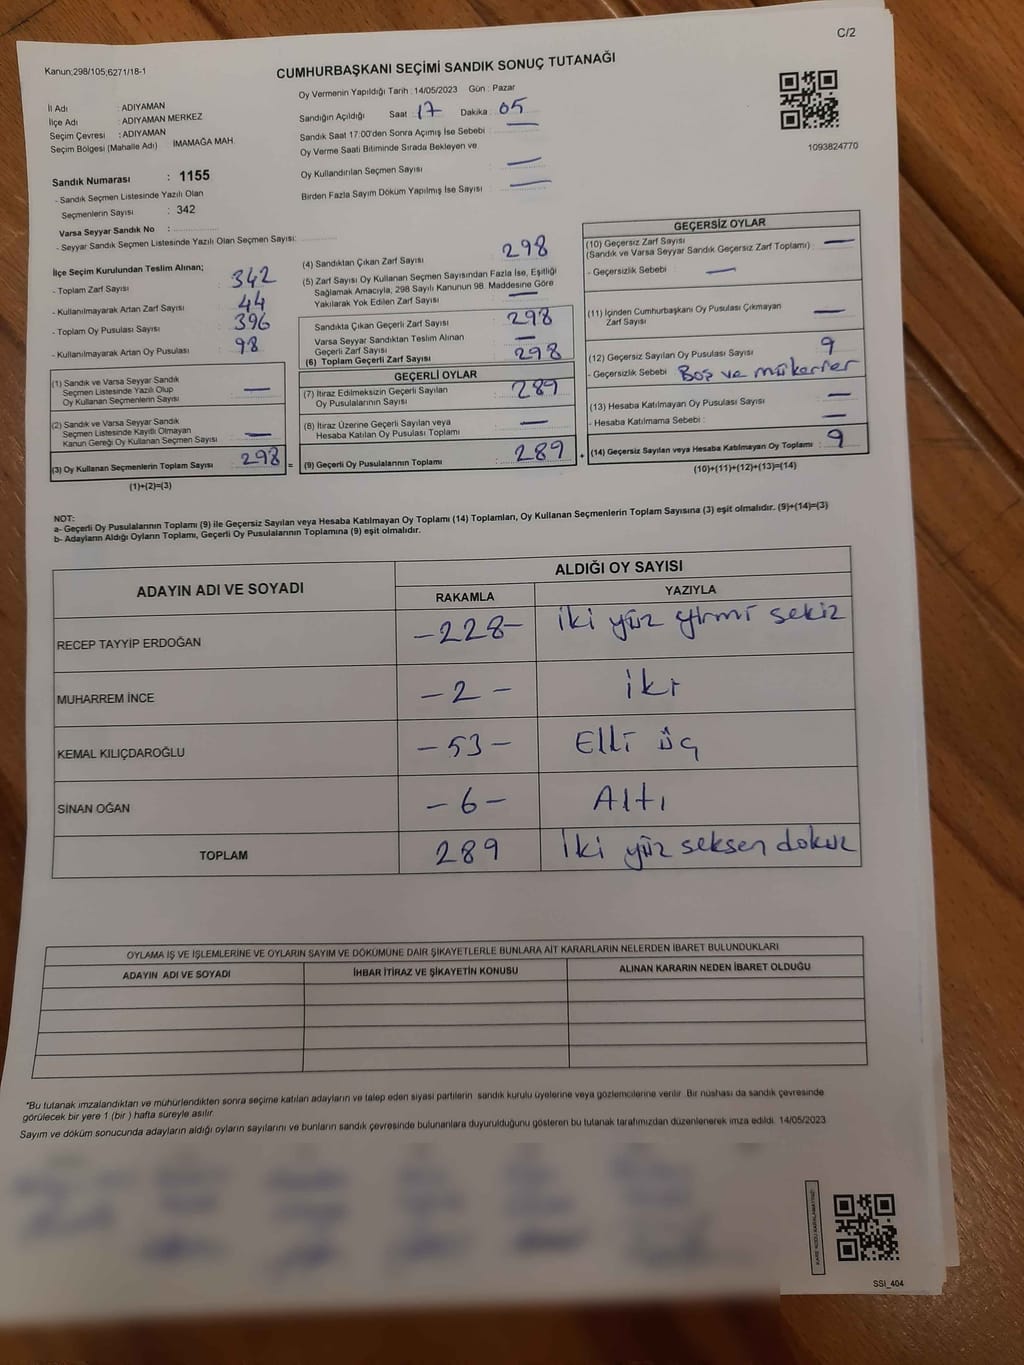 C/2
Kanun;298/105;6271/18-1
CUMHURBAŞKANI SEÇİMİ SANDIK SONUÇ TUTANAĞI
İl Adı : ADIYAMAN
İlçe Adı : ADIYAMAN MERKEZ
Seçim Çevresi : ADIYAMAN
Seçim Bölgesi (Mahalle Adı) İMAMAĞA MAH.
Sandık Numarası : 1155
- Sandık Seçmen Listesinde Yazılı Olan
Seçmenlerin Sayısı : 342
Varsa Seyyar Sandık No :
- Seyyar Sandık Seçmen Listesinde Yazılı Olan Seçmen Sayısı:
Oy Vermenin Yapıldığı Tarih : 14/05/2023 Gün : Pazar
Sandığın Açıldığı Saat 17 Dakika 05
Sandık Saat 17:00'den Sonra Açımış İse Sebebi : —
Oy Verme Saati Bitiminde Sırada Bekleyen ve
Oy Kullandırılan Seçmen Sayısı : —
Birden Fazla Sayım Döküm Yapılmış İse Sayısı : —
1093824770
İlçe Seçim Kurulundan Teslim Alınan;
- Toplam Zarf Sayısı : 342
- Kullanılmayarak Artan Zarf Sayısı : 44
- Toplam Oy Pusulası Sayısı : 396
- Kullanılmayarak Artan Oy Pusulası : 98
(1) Sandık ve Varsa Seyyar Sandık
Seçmen Listesinde Yazılı Olup
Oy Kullanan Seçmenlerin Sayısı : —
(2) Sandık ve Varsa Seyyar Sandık
Seçmen Listesinde Kayıtlı Olmayan
Kanun Gereği Oy Kullanan Seçmen Sayısı : —
(3) Oy Kullanan Seçmenlerin Toplam Sayısı : 298 =
(1)+(2)=(3)
(4) Sandıktan Çıkan Zarf Sayısı : 298
(5) Zarf Sayısı Oy Kullanan Seçmen Sayısından Fazla İse, Eşitliği
Sağlamak Amacıyla, 298 Sayılı Kanunun 98. Maddesine Göre
Yakılarak Yok Edilen Zarf Sayısı : —
Sandıkta Çıkan Geçerli Zarf Sayısı : 298
Varsa Seyyar Sandıktan Teslim Alınan
Geçerli Zarf Sayısı : —
(6) Toplam Geçerli Zarf Sayısı : 298
GEÇERLİ OYLAR
(7) İtiraz Edilmeksizin Geçerli Sayılan
Oy Pusulalarının Sayısı : 289
(8) İtiraz Üzerine Geçerli Sayılan veya
Hesaba Katılan Oy Pusulası Toplamı : —
(9) Geçerli Oy Pusulalarının Toplamı : 289 +
GEÇERSİZ OYLAR
(10) Geçersiz Zarf Sayısı
(Sandık ve Varsa Seyyar Sandık Geçersiz Zarf Toplamı) : —
- Geçersizlik Sebebi : —
(11) İçinden Cumhurbaşkanı Oy Pusulası Çıkmayan
Zarf Sayısı : —
(12) Geçersiz Sayılan Oy Pusulası Sayısı : 9
- Geçersizlik Sebebi : Boş ve mükerrer
(13) Hesaba Katılmayan Oy Pusulası Sayısı : —
- Hesaba Katılmama Sebebi : —
(14) Geçersiz Sayılan veya Hesaba Katılmayan Oy Toplamı : 9
(10)+(11)+(12)+(13)=(14)
NOT:
a- Geçerli Oy Pusulalarının Toplamı (9) ile Geçersiz Sayılan veya Hesaba Katılmayan Oy Toplamı (14) Toplamları, Oy Kullanan Seçmenlerin Toplam Sayısına (3) eşit olmalıdır. (9)+(14)=(3)
b- Adayların Aldığı Oyların Toplamı, Geçerli Oy Pusulalarının Toplamına (9) eşit olmalıdır.
ADAYIN ADI VE SOYADI ALDIĞI OY SAYISI
RAKAMLA YAZIYLA
RECEP TAYYİP ERDOĞAN —228— iki yüz yirmi sekiz
MUHARREM İNCE —2— iki
KEMAL KILIÇDAROĞLU —53— Elli üç
SİNAN OĞAN —6— Altı
TOPLAM 289 İki yüz seksen dokuz
OYLAMA İŞ VE İŞLEMLERİNE VE OYLARIN SAYIM VE DÖKÜMÜNE DAİR ŞİKAYETLERLE BUNLARA AİT KARARLARIN NELERDEN İBARET BULUNDUKLARI
ADAYIN ADI VE SOYADI İHBAR İTİRAZ VE ŞİKAYETİN KONUSU ALINAN KARARIN NEDEN İBARET OLDUĞU
*Bu tutanak imzalandıktan ve mühürlendikten sonra seçime katılan adayların ve talep eden siyasi partilerin sandık kurulu üyelerine veya gözlemcilerine verilir. Bir nüshası da sandık çevresinde
görülecek bir yere 1 (bir ) hafta süreyle asılır.
Sayım ve döküm sonucunda adayların aldığı oyların sayılarını ve bunların sandık çevresinde bulunanlara duyurulduğunu gösteren bu tutanak tarafımızdan düzenlenerek imza edildi. 14/05/2023
KARE KODU KARALAMAYINIZ!
SSI_404